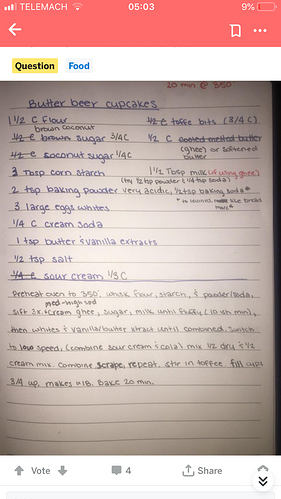 TELEMACH 05:03 9%
Question Food
20 min @ 350
Butter beer cupcakes
1 1/2 C flour 1/2 C toffe bits (3/4 C)
brown coconut
1/2 C brown sugar 3/4C 1/2 C cooled melted butter
(ghee) or softened butter
1/2 C coconut sugar 1/4C
3 Tbsp corn starch 1 1/2 Tbsp milk (if using ghee)
(try 1/2 tsp powder & 1/4 tsp soda)
2 tsp baking powder very acidic, 1/2 tsp baking soda*
3 large eggs whites
1/4 C cream soda
1 tsp butter & vanilla extracts
1/2 tsp salt
1/4 C sour cream 1/3 C
Preheat oven to 350. whisk flour, starch, & powder/soda,
med-high 500
Sift 3x. Cream ghee, sugar, milk until fluffy (10ish min),
then whites & vanilla/butter xtract until combined. Switch
to low speed, (combine sour cream & cola) mix 1/2 dry & 1/2
cream mix. Combine scrape, repeat. stir in toffee. fill cups
3/4 up. makes ~18. Bake 20 min.
Vote 4 Share